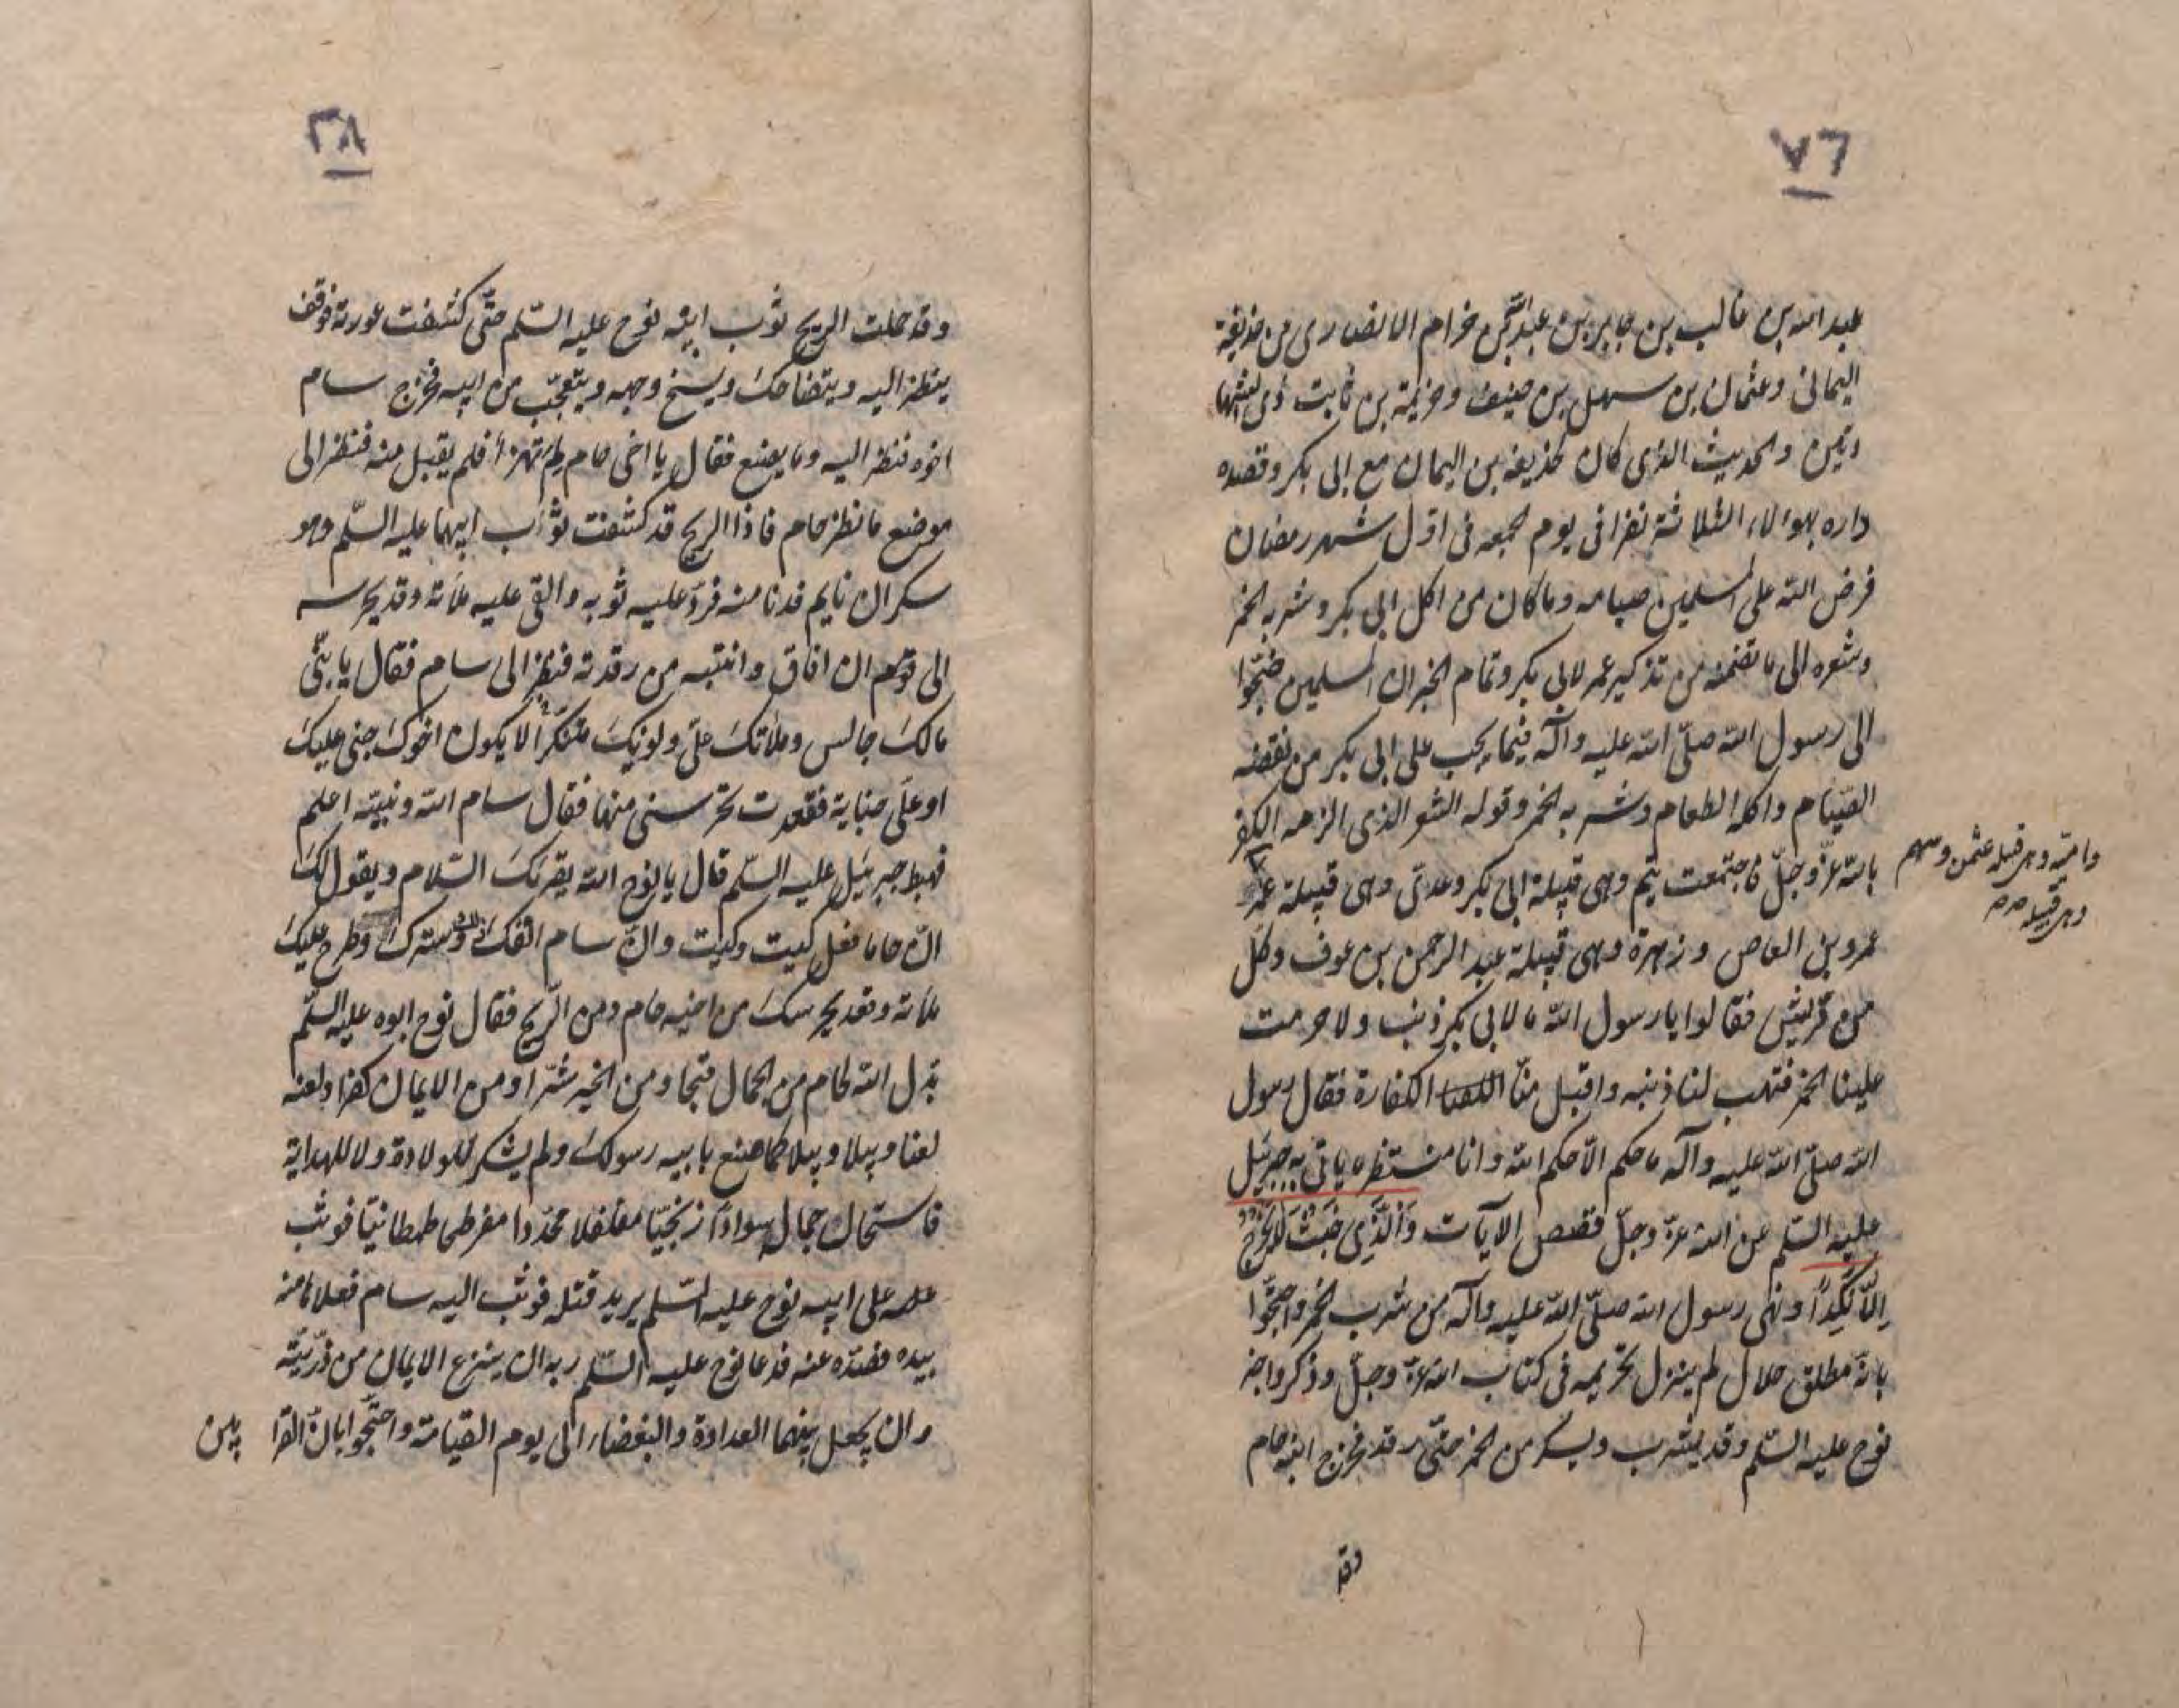 ٧٦
عبد الله بن غالب بن جابر بن عبد الله بن خرام الانصارى من حذيفة
اليمانى وعثمان بن سهل بن حنيف وخزيمة بن ثابت ذى الشها
دتين والحديث الذى كان لحذيفه بن اليمان مع ابى بكر وقصده
داره بهولاء الثلاثة نفرا فى يوم الجمعه فى اول شهر رمضان
فرض الله على المسلمين صيامه وما كان من اكل ابى بكر وشربه الخمر
وشعره الى ما تضمنه من تذكير عمر لابى بكر وتمام الخبر ان المسلمين ضجوا
الى رسول الله صلّى الله عليه وآله فيما يجب على ابى بكر من نقضه
الصّيام واكله الطعام وشربه الخمر وقوله الشعر الذى الزمه الكفر
بالله عزّ وجلّ فاجتمعت تيم وهى قبيلة ابى بكر وعدىّ وهى قبيلة عمر
واميّه وهى قبيله عثمن وسهم
وهى قبيله
عمرو بن العاص وزهرة وهى قبيلة عبد الرحمن بن عوف وكل
من قريش فقالوا يا رسول الله ما لابى بكر ذنب ولا حرمت
علينا الخمر فتهب لنا ذنبه واقبل منّا الكفارة فقال رسول
الله صلّى الله عليه وآله ما حكم الّا حكم الله وانا منتظر ما ياتى به جبرئيل
عليه السّلم عن الله عزّ وجلّ فقصص الايآت وَالَّذِى خَبُثَ لَا يَخْرُجُ
اِلَّا نَكِدًا ونهى رسول الله صلّى الله عليه وآله من شرب الخمر واحتجّوا
بانّه مطلق حلال لم ينزل تحريمه فى كتاب الله عزّ وجلّ وذكروا خبر
نوح عليه السّلم وقد يشرب ويسكر من الخمر حتّى رقد فخرج ابنه حام
وقد
٢٨
وقد حملت الريح ثوب ابيه نوح عليه السّلم حتّى كشفت عورته فوقف
ينظر اليه ويتضاحك ويسخ وجهه ويتعجّب من ابيه فخرج سام
اخوه فنظر اليه وما يصنع فقال يا اخى حام لم تهزأ فلم يقبل منه فنظر الى
موضع ما نظر حام فاذا الريح قد كشفت ثواب ابيهما عليه السّلم وهو
سكران نايم فدنا منه فردّ عليه ثوبه والقى عليه ملاته وقد يحرسه
الى ان افاق وانتبه من رقدته فنظر الى سام فقال يا بنىّ
مالك جالس وملاتك علىّ ولونك متنكراً لا يكون اخوك جنى عليك
او علّى جناية فقعدت تحرسنى منها فقال سام الله ونبيّه اعلم
فهبط جبرئيل عليه السّلم قال يا نوح الله يقرئك السّلام ويقول لك
انّ حاما فعل كيت وكيت وانّ سام انفك وسترك وطرح عليك
ملاته وقعد يحرسك من اخيه حام ومن الرّيح فقال نوح ابوه عليه السّلم
بدّل الله لحام من الجمال قبحا ومن الخير شرّا ومن الايمان كفرا ولعنه
لعنا وبيلا وبيلا كما صنع بابيه رسولك ولم يشكر للولادة ولا للهداية
فاستحال جماله سوادا زنجيّا مفلفلا محدّدا مفرطى طمطانيّا فوثب
على ابيه نوح عليه السّلم يريد قتله فوثب اليه سام فعلا ما منه
بيده فصدّه عنه فدعا نوح عليه السّلم ربه ان ينزع الايمان من ذرّيته
وان يجعل بينهما العداوة والبغضاء الى يوم القيامة واحتجّوا بانّ القرا
بين